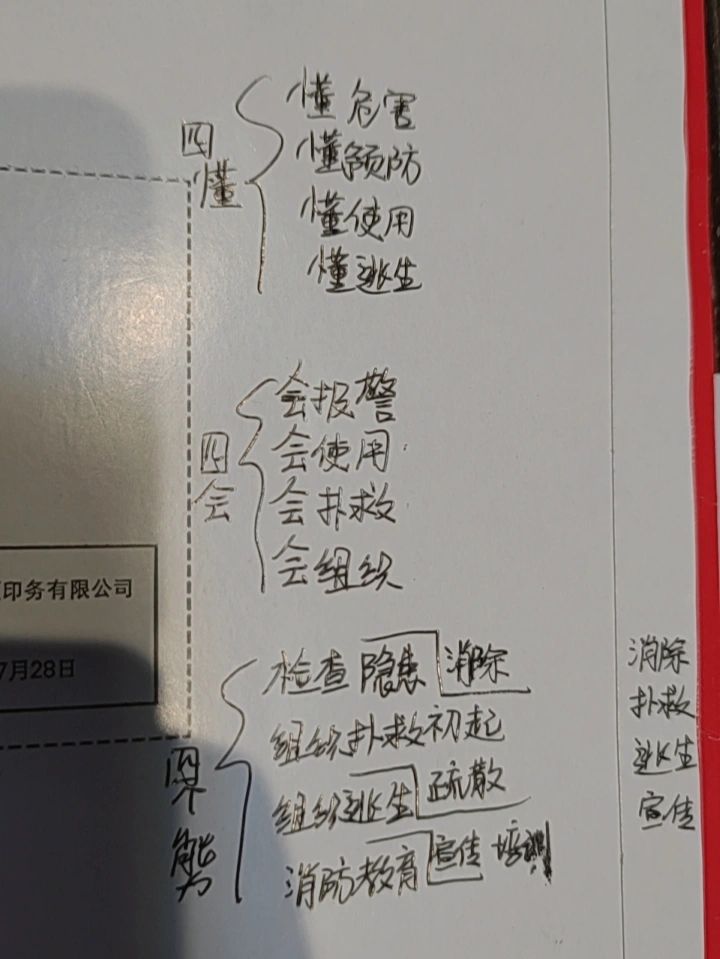 四懂
懂危害
懂预防
懂使用
懂逃生
四会
会报警
会使用
会扑救
会组织
印务有限公司
7月28日
四个能力
检查隐患消除
组织扑救初起
组织逃生疏散
消防教育宣传培训
消除
扑救
逃生
宣传